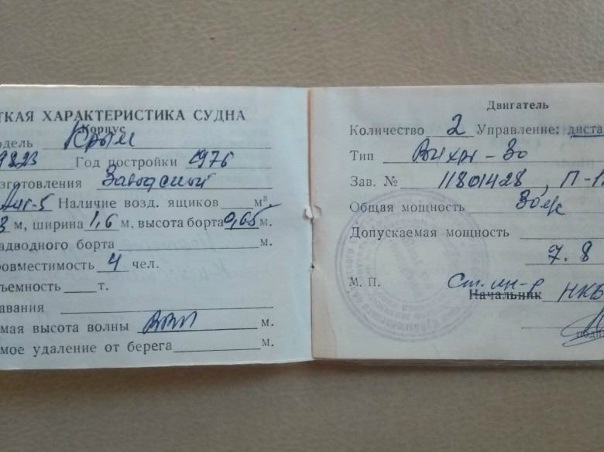 ТКАЯ ХАРАКТЕРИСТИКА СУДНА
Корпус
одель Крым
9823 Год постройки 1976
зготовления Заводской
Наличие возд. ящиков м³
м, ширина 1,6 м, высота борта 0,65 м.
адводного борта м.
ровместимость 4 чел.
ъемность т.
лавания
мая высота волны ВВП м.
мое удаление от берега м.
Двигатель
Количество 2 Управление: диста
Тип Вихрь-30
Зав. № 11801428, П-1
Общая мощность
Допускаемая мощность
7.8
М. П. Ст. ин-р
Начальник НКВ